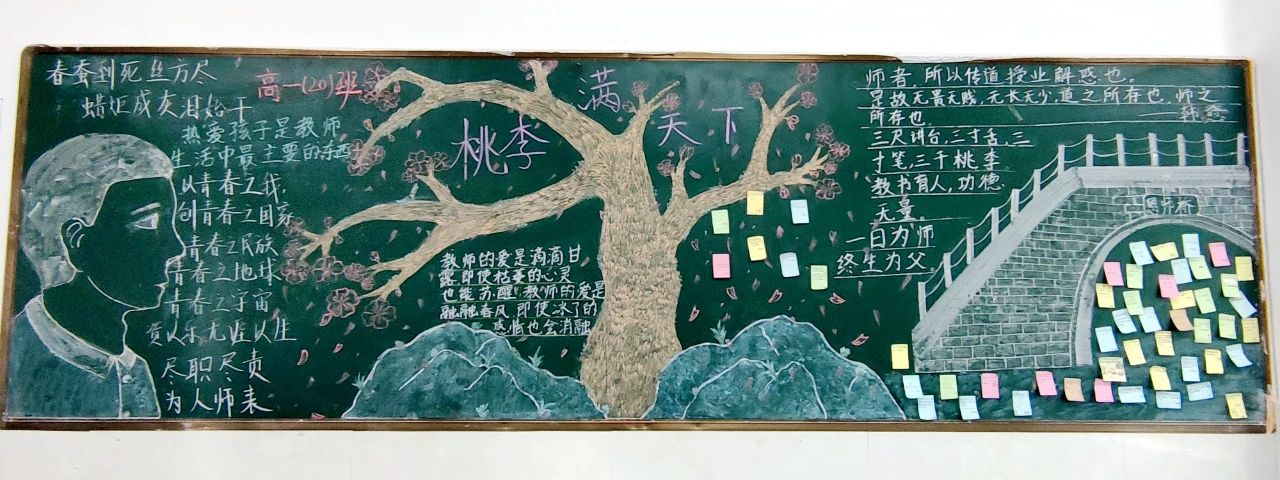 春蚕到死丝方尽
蜡炬成灰泪始干
高一(20)班
热爱孩子是教师
生活中最主要的东西
以青春之我,
创青春之国家
青春之民族
青春之地球
青春之宇宙
尽职尽责
为人师表
桃李
满
天下
教师的爱是滴滴甘
露即使枯萎的心灵
也能苏醒!教师的爱是
融融春风,即使冰了的
感情也会消融
师者,所以传道授业解惑也。
是故无贵无贱,无长无少,道之所存也,师之
所存也
——韩愈
三尺讲台,三寸舌,三
寸笔,三千桃李
教书育人,功德
无量。
一日为师
终生为父。
恩师桥